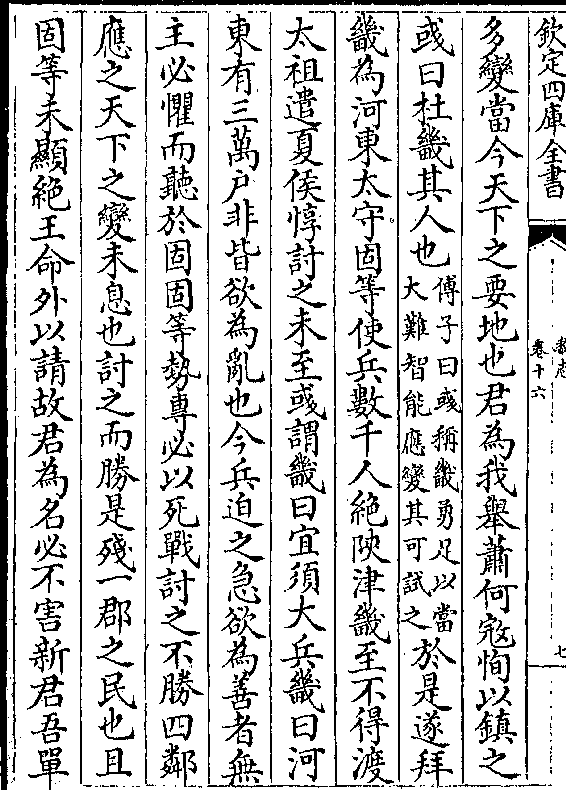 欽定四庫全書
魏志
卷十六
七
多變當今天下之要地也君為我舉蕭何宼恂以鎮之
或曰杜畿其人也傅子曰彧稱畿勇足以當
大難智能應變其可試之於是遂拜
畿為河東太守固等使兵數千人絶陝津畿至不得渡
太祖遣夏侯惇討之未至或謂畿曰宜須大兵畿曰河
東有三萬户非皆欲為亂也今兵迫之急欲為善者無
主必懼而聽於固固等勢專必以死戰討之不勝四鄰
應之天下之變未息也討之而勝是殘一郡之民也且
固等未顯絶王命外以請故君為名必不害新君吾單